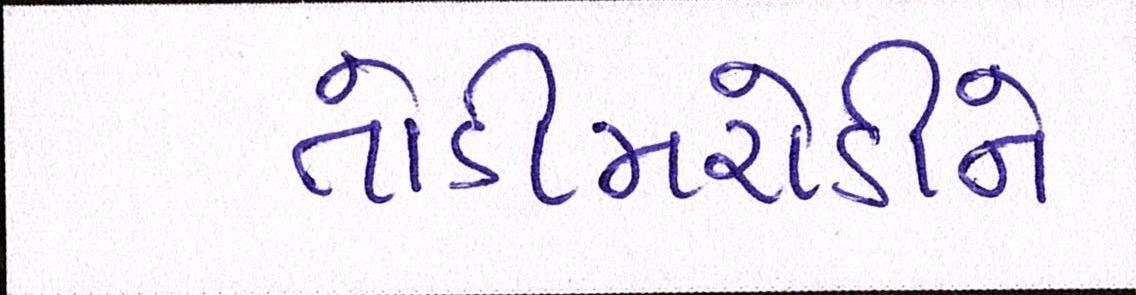 તોડીમરોડીને